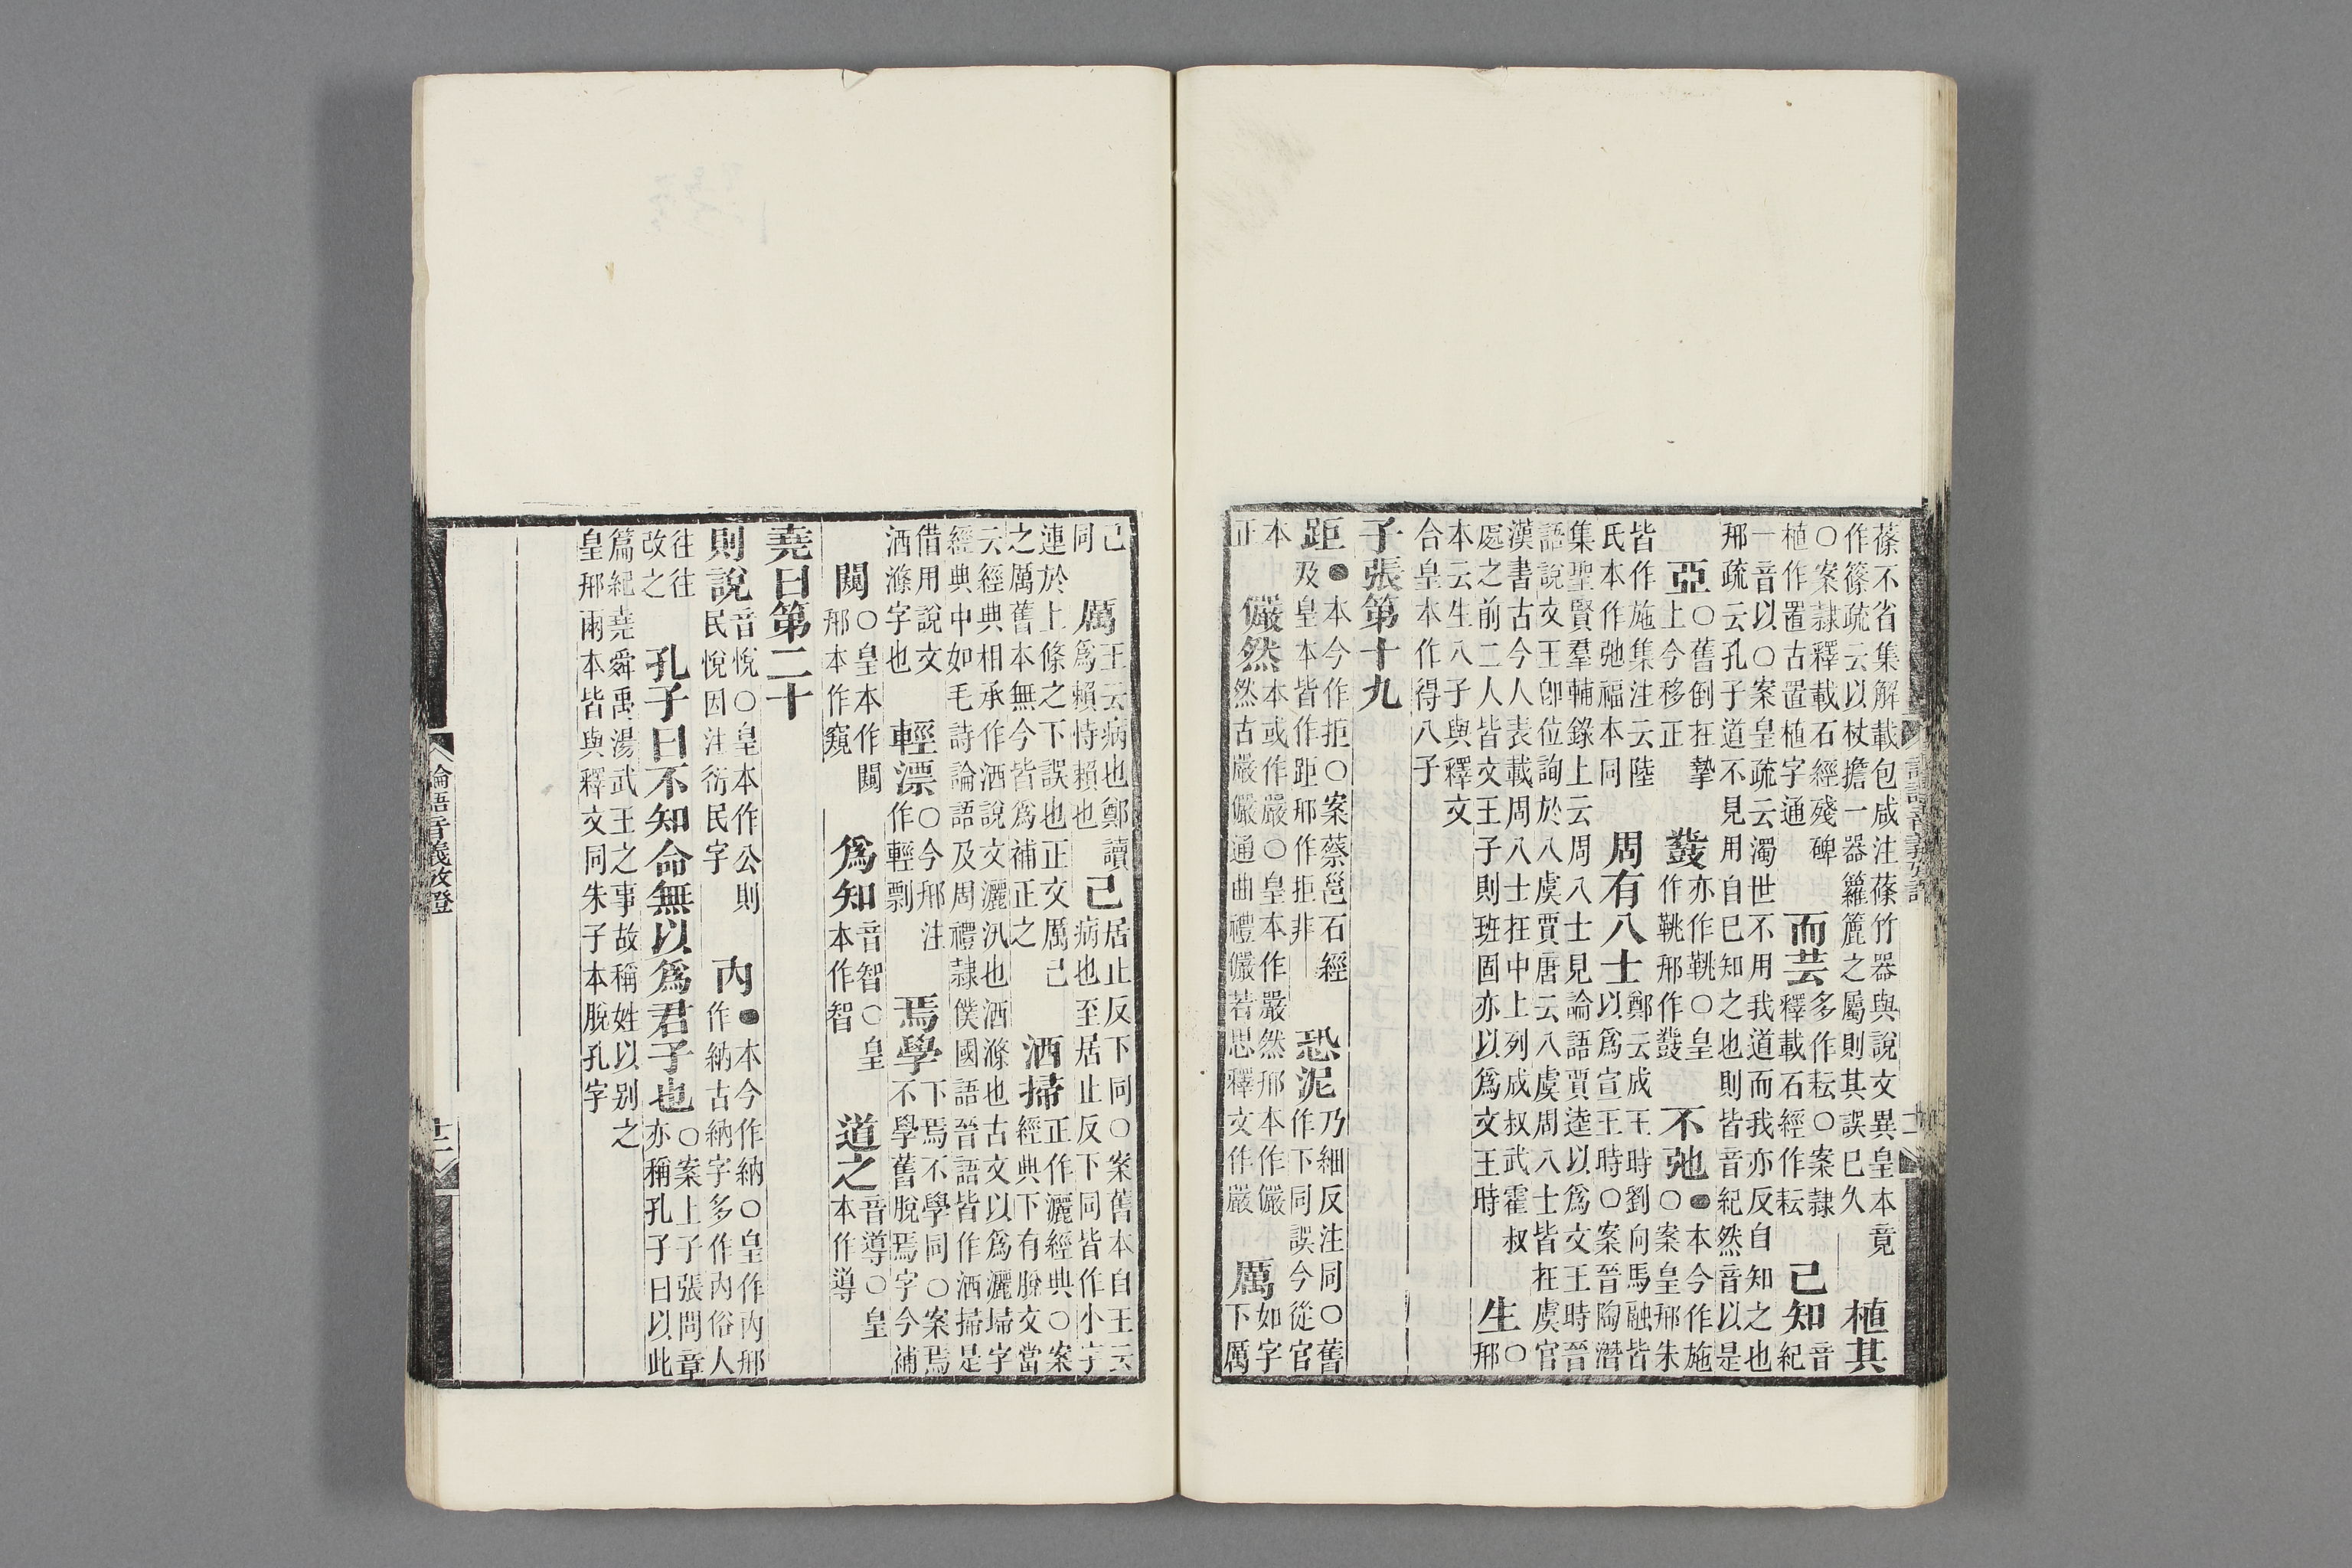 蓧不省集解載包咸注蓧竹器與說文異皇本竟
作蓧疏云以杖擔一器籮簏之屬則其誤已久
植其
○案隸釋載石經殘碑
植作置古置植字通
而芸
多作耘○案隸
釋載石經作耘
己知
音
紀
一音以○案皇疏云濁世不用我道而我亦反自知之也
邢疏云孔子道不見用自己知之也則皆音紀然音以是
亞
○舊倒在摯
上今移正
鼗
亦作鞉○皇
作鞉邢作鼗
不弛
●本今作施
○案皇邢朱
皆作施集注云陸
氏本作弛福本同
周有八士
鄭云成王時劉向馬融皆
以爲宣王時○案晉陶潛
集聖賢羣輔錄上云周八士見論語賈逵以爲文王時晉
語說文王卽位詢於八虞賈唐云八虞周八士皆在虞官
漢書古今人表載周八士在中上列成叔武霍叔
處之前二人皆文王子則班固亦以爲文王時
生
○
邢
本云生八子與釋文
合皇本作得八子
子張第十九
距
●本今作拒○案蔡邕石經
及皇本皆作距邢作拒非
恐泥
乃細反注同○舊
作下同誤今從官
本
正
儼然
本或作嚴○皇本作嚴然邢本作儼
然古嚴儼通曲禮儼若思釋文作嚴
厲
如字
下厲
己
同
厲
王云病也鄭讀
爲賴恃賴也
己
居止反下同○案舊本自王云
病也至居止反下同皆作小字
連於上條之下誤也正文厲己
之厲舊本無今皆爲補正之
洒掃
正作灑經典○案
經典下有脫文當
云經典相承作洒說文灑汛也洒滌也古文以爲灑埽字
經典中如毛詩論語及周禮隷僕國語晉語皆作洒掃是
借用說文
洒滌字也
輕漂
○今邢注
作輕剽
焉學
下焉不學同○案焉
不學舊脫焉字今補
闚
○皇本作闚
邢本作窺
爲知
音智○皇
本作智
道之
音導○皇
本作導
堯曰第二十
則說
音悅○皇本作公則
民悅因注衍民字
內
●本今作納○皇作內邢
作納古納字多作內俗人
往往
改之
孔子曰不知命無以爲君子也
○案上子張問章
亦稱孔子曰以此
篇紀堯舜禹湯武王之事故稱姓以别之
皇邢兩本皆與釋文同朱子本脫孔字
論語音義攷證